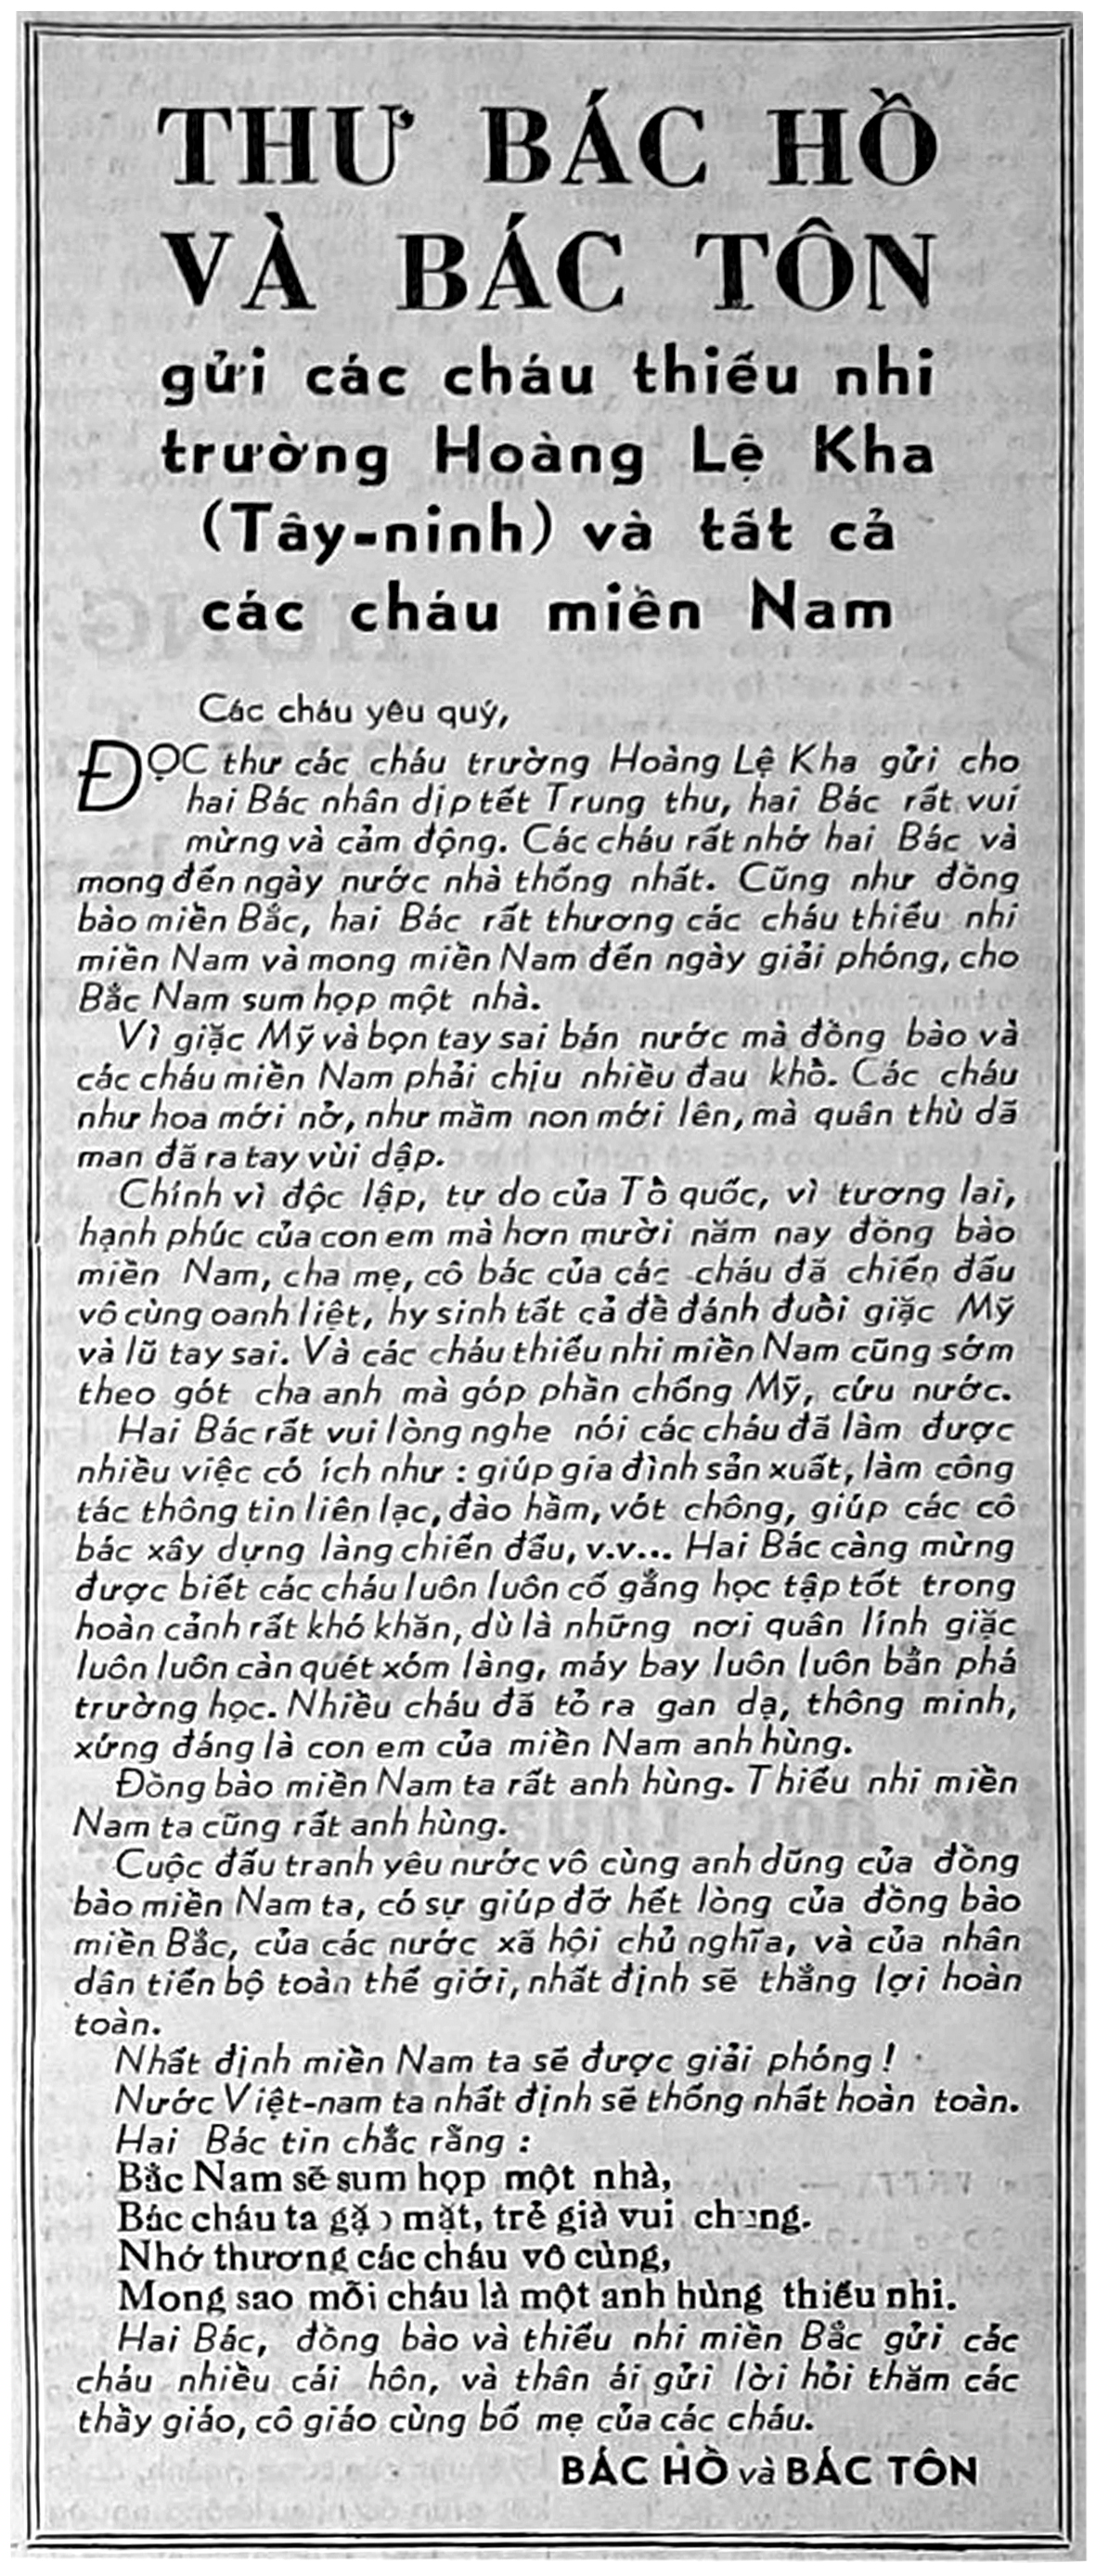 THƯ BÁC HỒ
VÀ BÁC TÔN
gửi các cháu thiếu nhi
trường Hoàng Lệ Kha
(Tây-ninh) và tất cả
các cháu miền Nam
Các cháu yêu quý,
ĐỌC thư các cháu trường Hoàng Lệ Kha gửi cho
hai Bác nhân dịp tết Trung thu, hai Bác rất vui
mừng và cảm động. Các cháu rất nhớ hai Bác và
mong đến ngày nước nhà thống nhất. Cũng như đồng
bào miền Bắc, hai Bác rất thương các cháu thiếu nhi
miền Nam và mong miền Nam đến ngày giải phóng, cho
Bắc Nam sum họp một nhà.
Vì giặc Mỹ và bọn tay sai bán nước mà đồng bào và
các cháu miền Nam phải chịu nhiều đau khổ. Các cháu
như hoa mới nở, như mầm non mới lên, mà quân thù dã
man đã ra tay vùi dập.
Chính vì độc lập, tự do của Tổ quốc, vì tương lai,
hạnh phúc của con em mà hơn mười năm nay đồng bào
miền Nam, cha mẹ, cô bác của các cháu đã chiến đấu
vô cùng oanh liệt, hy sinh tất cả để đánh đuổi giặc Mỹ
và lũ tay sai. Và các cháu thiếu nhi miền Nam cũng sớm
theo gót cha anh mà góp phần chống Mỹ, cứu nước.
Hai Bác rất vui lòng nghe nói các cháu đã làm được
nhiều việc có ích như : giúp gia đình sản xuất, làm công
tác thông tin liên lạc, đào hầm, vót chông, giúp các cô
bác xây dựng làng chiến đấu, v.v... Hai Bác càng mừng
được biết các cháu luôn luôn cố gắng học tập tốt trong
hoàn cảnh rất khó khăn, dù là những nơi quân lính giặc
luôn luôn càn quét xóm làng, máy bay luôn luôn bắn phá
trường học. Nhiều cháu đã tỏ ra gan dạ, thông minh,
xứng đáng là con em của miền Nam anh hùng.
Đồng bào miền Nam ta rất anh hùng. Thiếu nhi miền
Nam ta cũng rất anh hùng.
Cuộc đấu tranh yêu nước vô cùng anh dũng của đồng
bào miền Nam ta, có sự giúp đỡ hết lòng của đồng bào
miền Bắc, của các nước xã hội chủ nghĩa, và của nhân
dân tiến bộ toàn thế giới, nhất định sẽ thắng lợi hoàn
toàn.
Nhất định miền Nam ta sẽ được giải phóng !
Nước Việt-nam ta nhất định sẽ thống nhất hoàn toàn.
Hai Bác tin chắc rằng :
Bắc Nam sẽ sum họp một nhà,
Bác cháu ta gặp mặt, trẻ già vui chung.
Nhớ thương các cháu vô cùng,
Mong sao mỗi cháu là một anh hùng thiếu nhi.
Hai Bác, đồng bào và thiếu nhi miền Bắc gửi các
cháu nhiều cái hôn, và thân ái gửi lời hỏi thăm các
thầy giáo, cô giáo cùng bố mẹ của các cháu.
BÁC HỒ và BÁC TÔN